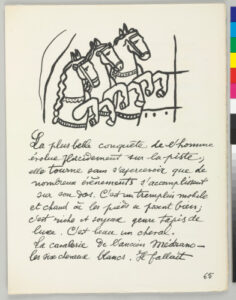 La plus belle conquête de l'homme
évolue placidement sur la piste,
elle tourne sans s'apercevoir que de
nombreux événements s'accomplissent
sur son dos. C'est un tremplin mobile
et chaud où les pieds se posent bien,
c'est riche et soyeux genre tapis de
luxe. C'est beau un cheval.
La cavalerie de l'ancien Médrano —
les six chevaux blancs. Il fallait
65